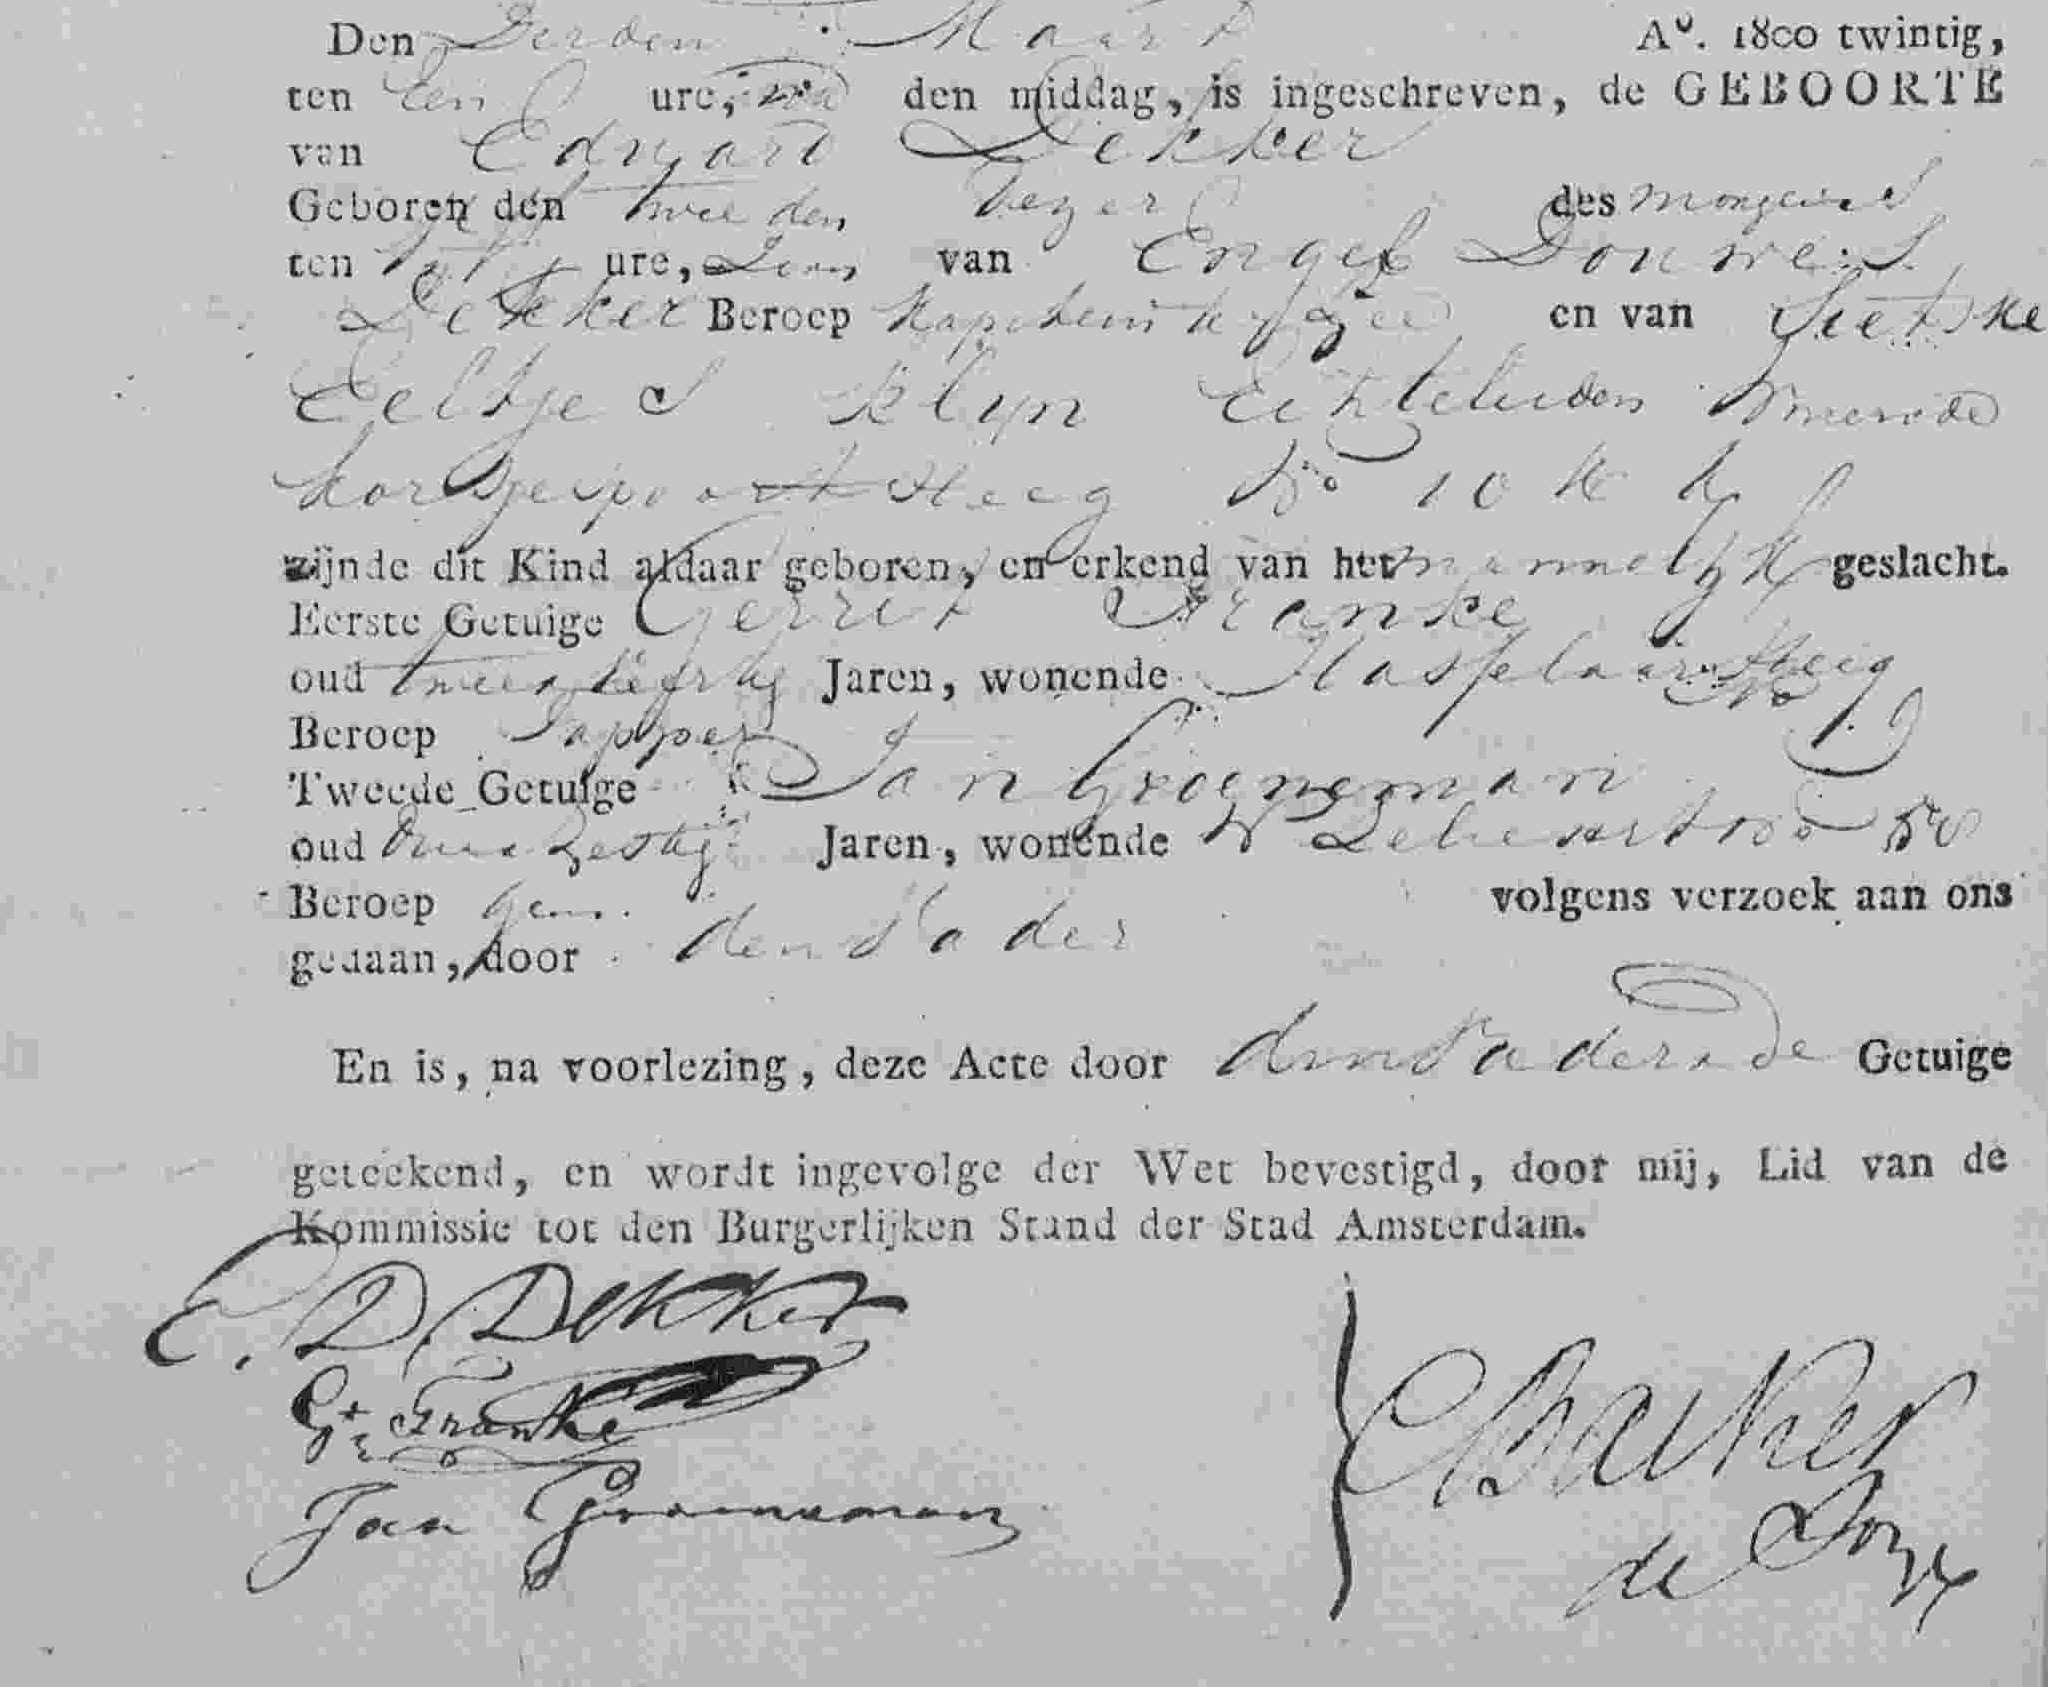 Den Derden Maart Aº. 1800 twintig,
ten Een ure, na den middag, is ingeschreven, de GEBOORTE
van Eduard Dekker
Geboren den tweeden dezer des morgens
ten ure, Zoon van Engel Douwes
Dekker Beroep Kapitein ter Zee en van Sietske
Eeltjes Klyn Echtelieden wonende
Korsjespoortsteeg No 10 K K
zijnde dit Kind aldaar geboren, en erkend van het mannelyk geslacht.
Eerste Getuige Gerrit Franke
oud Jaren, wonende Hasselaarsteeg No
Beroep Tapper
Tweede Getuige Jan Groeneman
oud Jaren, wonende
Beroep geen volgens verzoek aan ons
gedaan, door den Vader
En is, na voorlezing, deze Acte door den Vader en de Getuige
geteekend, en wordt ingevolge der Wet bevestigd, door mij, Lid van de
Kommissie tot den Burgerlijken Stand der Stad Amsterdam.
E. D. Dekker
Gt Franke
Jan Groeneman
C Backer
de Jonge